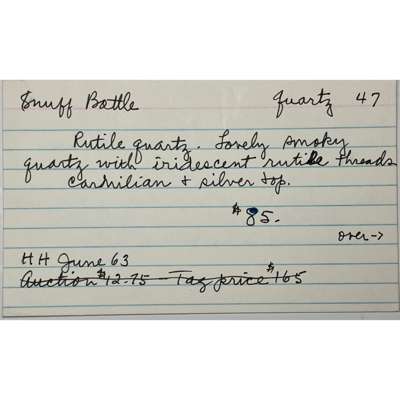 Snuff Bottle quartz 47
Rutile quartz. Lovely smoky
quartz with iridescent rutile threads
Carnilian + silver top.
$85.
over->
HH June 63
Auction $12.75 - Tag price $165